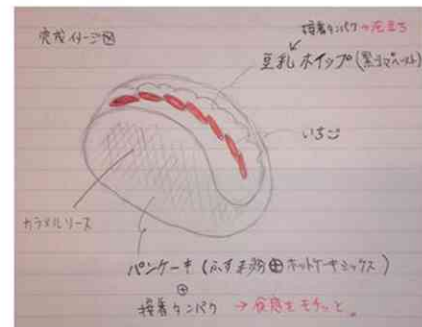 完成イメージ図
接着タンパク→泡立ち
豆乳ホイップ(黒ゴマペースト)
いちご
カラメルソース
パンケーキ(ふすま粉⊕ホットケーキミックス)
⊕
接着タンパク → 食感をモチッと。